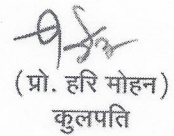 ( प्रो. हरि मोहन )
कुलपति